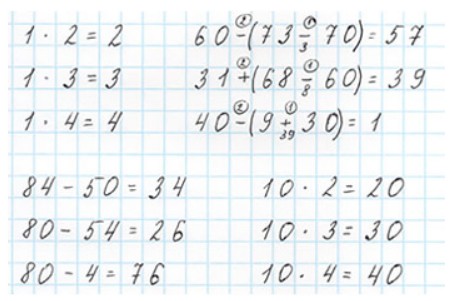 1 · 2 = 2
1 · 3 = 3
1 · 4 = 4
60 -② (73 -① 70) = 57
3
31 +② (68 -① 60) = 39
8
40 -② (9 +① 30) = 1
39
84 - 50 = 34
80 - 54 = 26
80 - 4 = 76
10 · 2 = 20
10 · 3 = 30
10 · 4 = 40